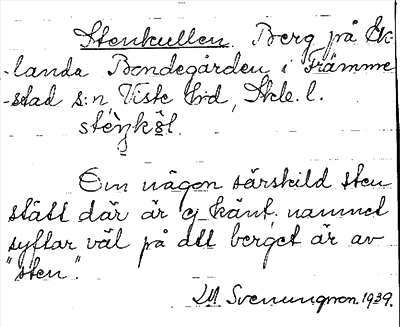 Stenkullen. Berg på Ek-
-landa Bondegården i Främme-
-stad s:n Viste hd, Skb. l.
Om någon särskild sten
stått där är ej känt. namnet
syftar väl på att berget är av
"sten".
IM Svenungson. 1939.